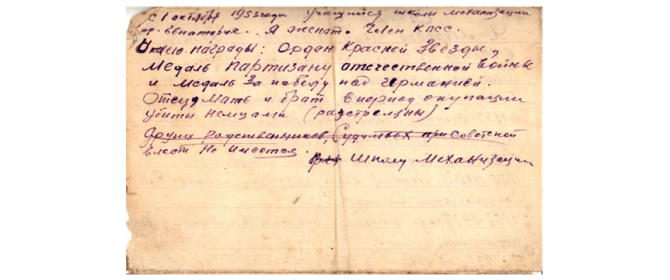 С 1 октября 1953 года учащийся школы механизации
гор. Евпатория.. Я женат. Член КПСС.
Имею награды: Орден Красной Звезды,
Медаль Партизану отечественной войны
и медаль За победу над Германией.
Отец, Мать и брат в период окупации
убиты немцами (растреляны)
Других родственников, Судимых при Советской
власти не имеется.
Школу Механизации